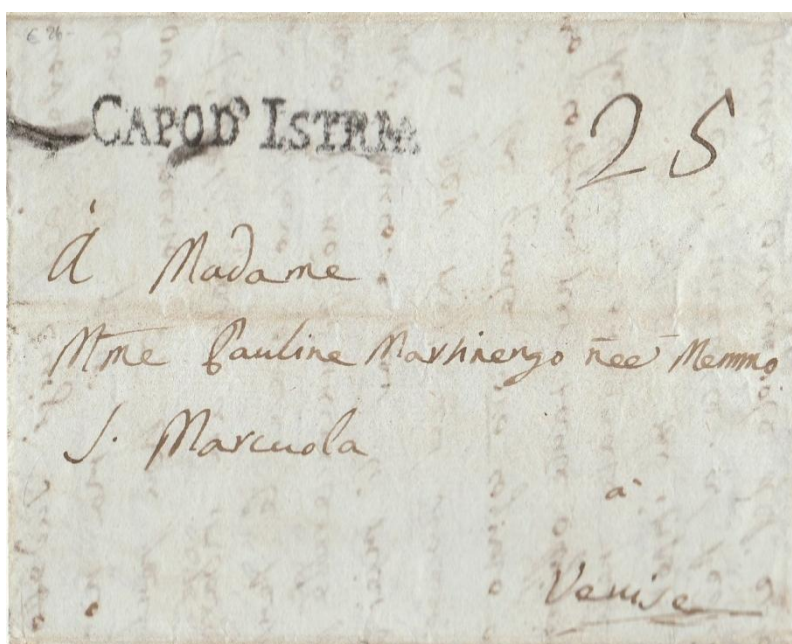 € 26-
CAPOD' ISTRIA
25
À Madame
Mme Pauline Martinengo née Memmo
S. Marcuola
à
Venise